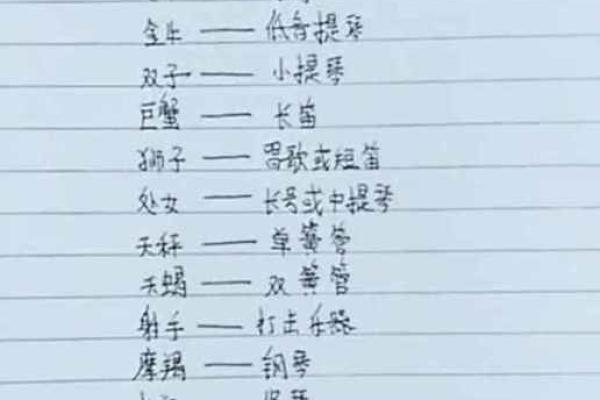 金牛 —— 低音提琴
双子 —— 小提琴
巨蟹 —— 长笛
狮子 —— 唱歌或短笛
处女 —— 长号或中提琴
天秤 —— 单簧管
天蝎 —— 双簧管
射手 —— 打击乐器
摩羯 —— 钢琴